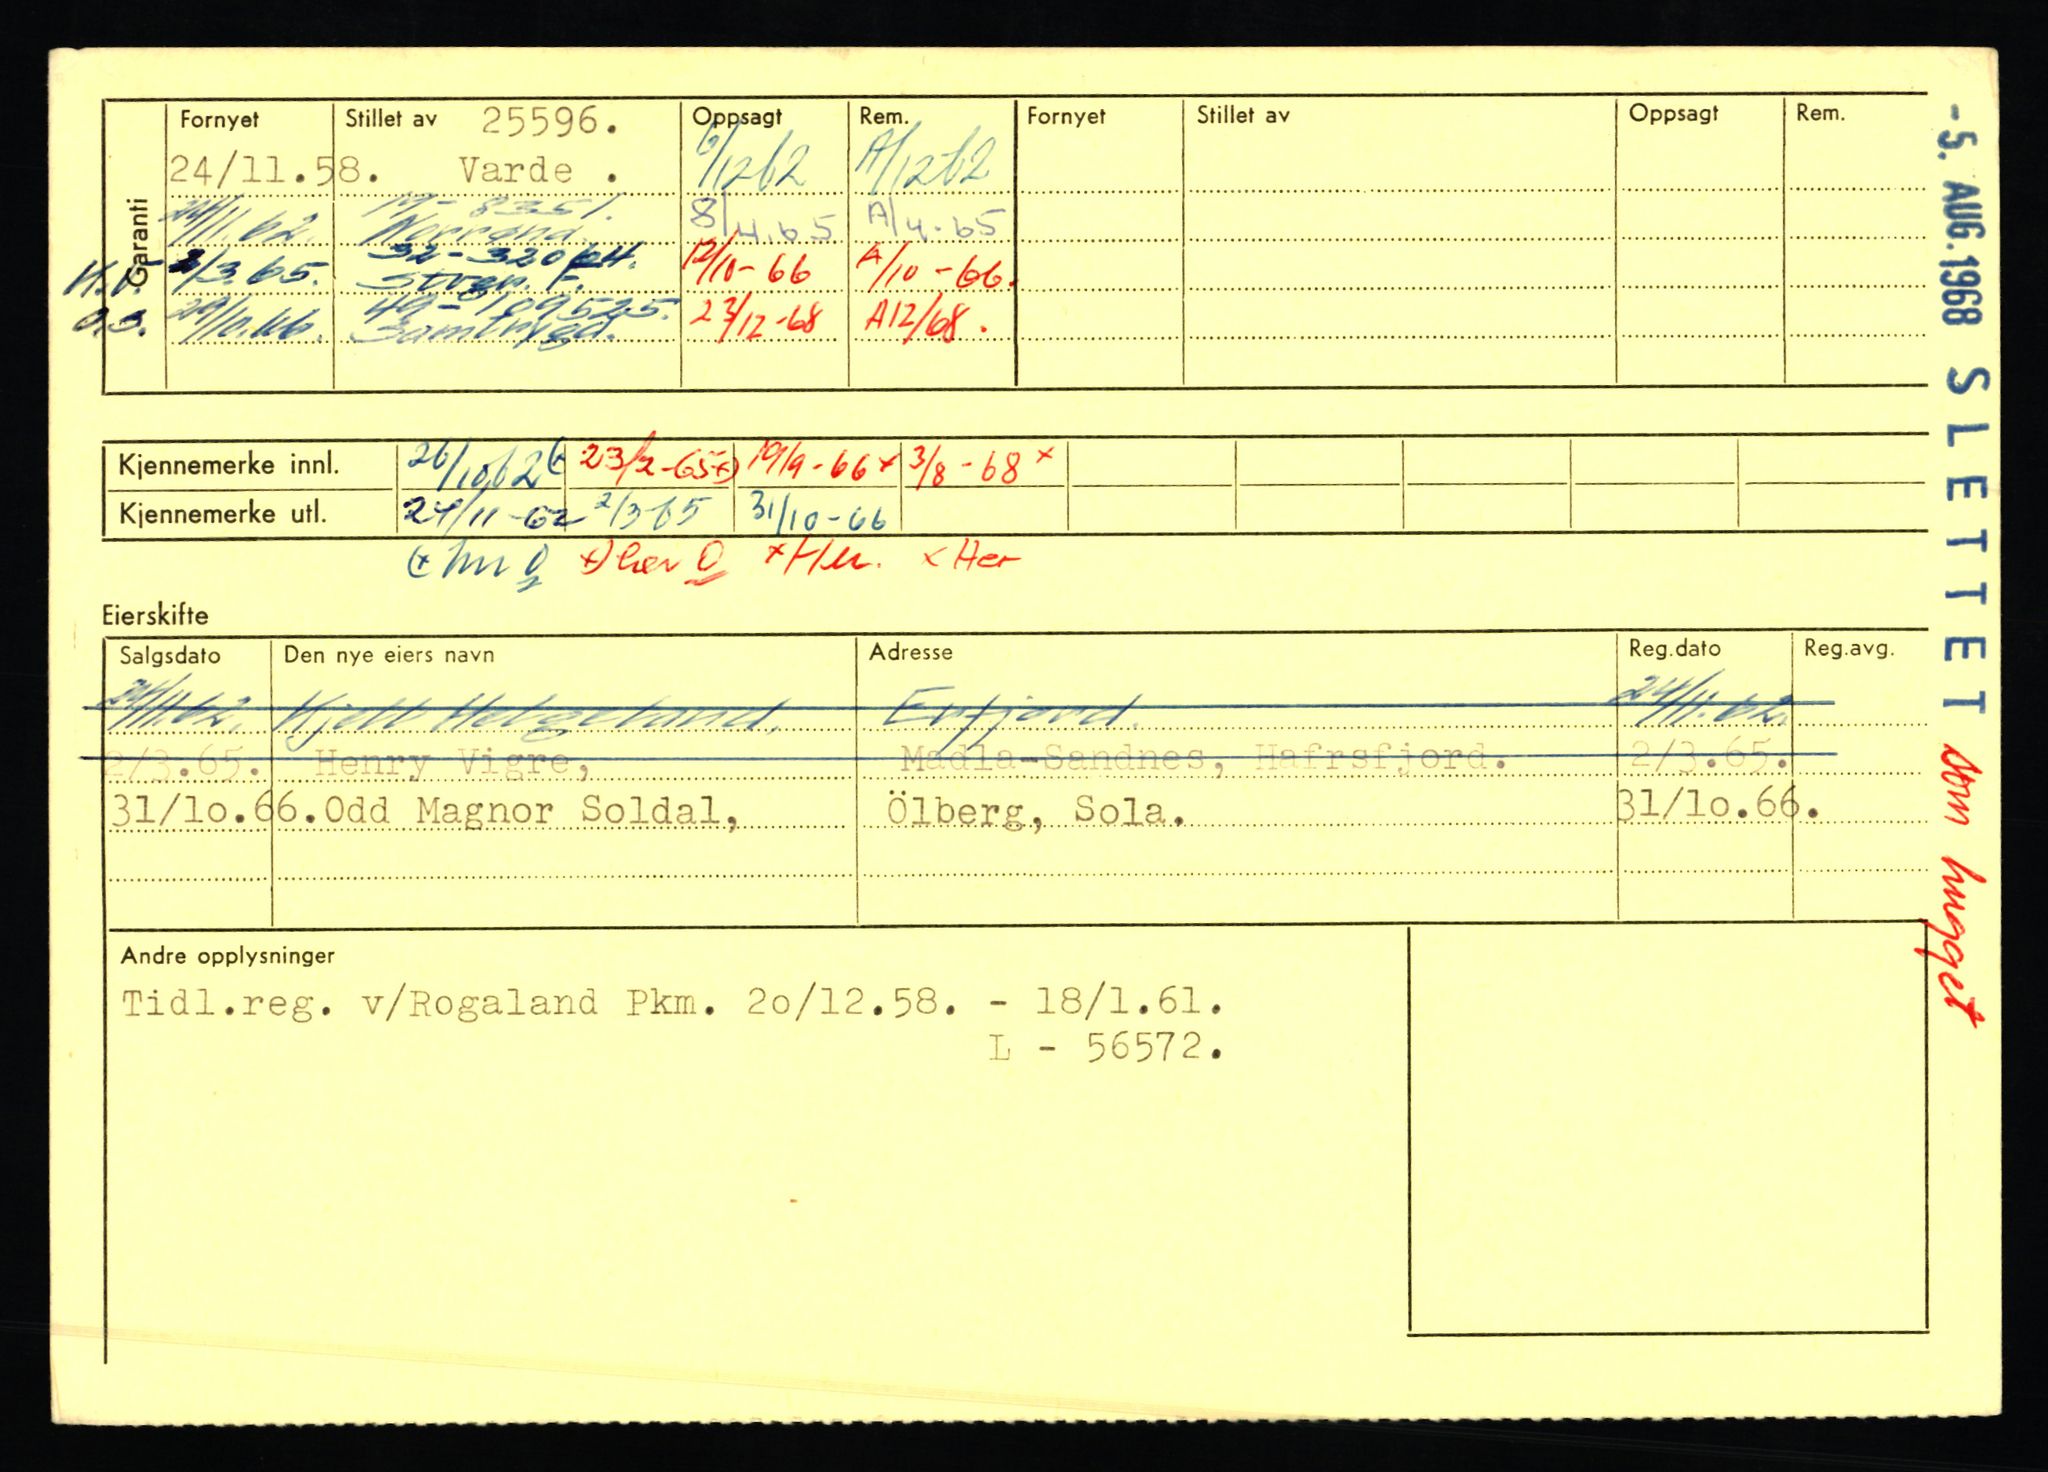 Garanti
Fornyet Stillet av 25596. Oppsagt Rem. Fornyet Stillet av Oppsagt Rem.
24/11.58. Varde . 6/12 62 A/12 62
24/11.62 M-8351. 8/4.65 A/4.65
Norrøna.
2/3.65. 32-320 12/10-66 A/10-66.
29/10.66. 49-109525. 23/12-68 A12/68.
Samtrygd.
Kjennemerke innl. 26/10 62 (x 23/2-65 x) 19/9-66 x 3/8-68 x
Kjennemerke utl. 24/11-62 2/3-65 31/10-66
(x her O x) her O x Her. x Her
Eierskifte
Salgsdato Den nye eiers navn Adresse Reg.dato Reg.avg.
24/11.62. Kjell Helgeland. Erfjord. 24/11.62.
2/3.65. Henry Vigre, Madla-Sandnes, Hafrsfjord. 2/3.65.
31/1o.66. Odd Magnor Soldal, Ölberg, Sola. 31/1o.66.
Andre opplysninger
Tidl.reg. v/Rogaland Pkm. 2o/12.58. - 18/1.61.
L - 56572.
-5. AUG. 1968 SLETTET som hugget